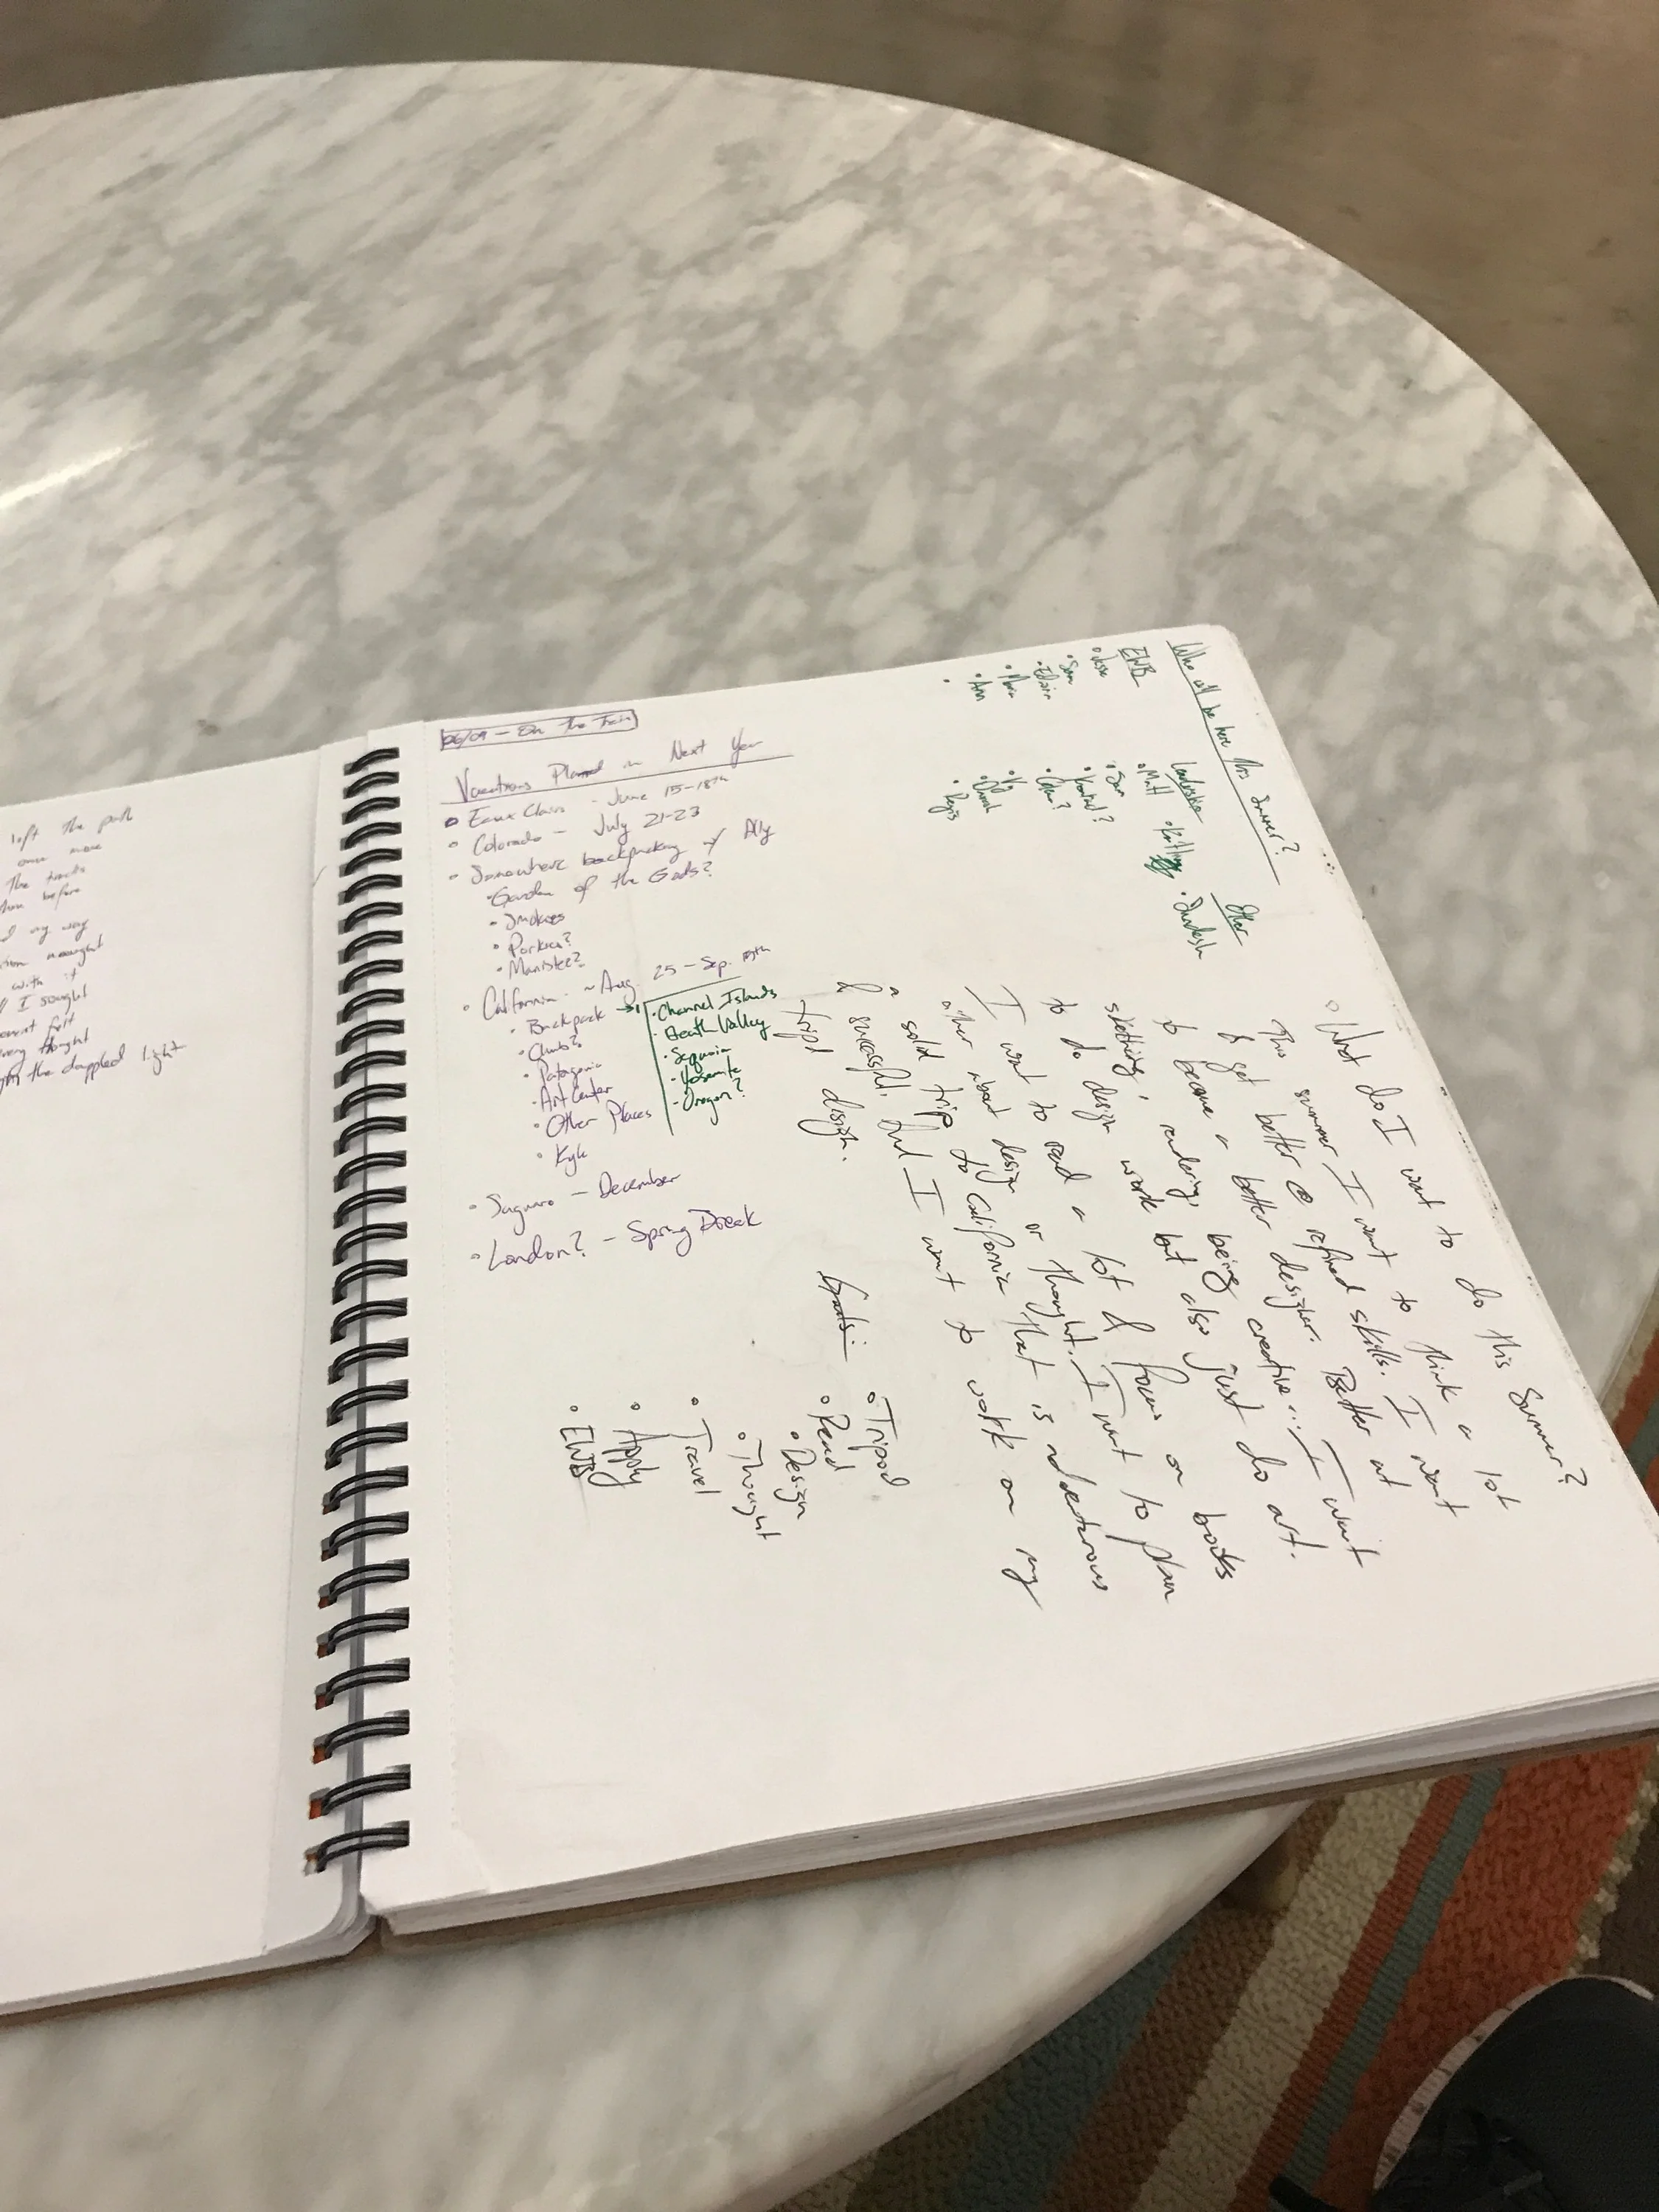 left the path
once more
the tracks
before
my way
nought
with it
I sought
felt
thought
the dappled light
06/09 - On The Train
Vacations Planned in Next Year
Eaux Claires - June 15-18th
Colorado - July 21-23
Somewhere backpacking w/ Ally
Garden of the Gods?
Smokies
Porkies?
Manistee?
California - ~Aug. 25 - Sep.
Backpack →
Climb?
Patagonia
Art Center
Other Places
Kyle
Channel Islands
Death Valley
Sequoia
Yosemite
Oregon?
Saguaro - December
London? - Spring Break
Who all be here this summer?
EWB
Jesse
Sam
Maria
Ann
Leadership
Matt
Sam
Regis
Other
Sundesh
What do I want to do this Summer?
This summer I want to think a lot
& get better @ refined skills. I want
to become a better designer. Better at
sketching, rendering, being creative... I want
to do design work but also just do art.
I want to read a lot & focus on books
either about design or thought. I want to plan
a solid trip to California that is adventurous
& successful, and I want to work on my
tripd disign.
Goals:
Tripod
Read
Design
Thought
Travel
Apply
EWB